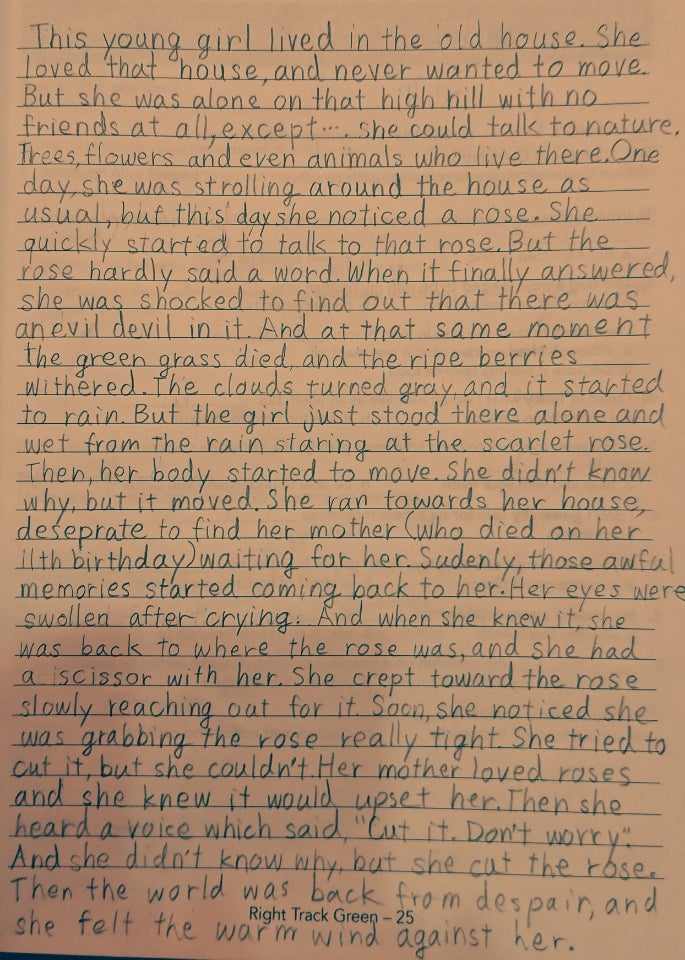 This young girl lived in the old house. She
loved that house, and never wanted to move.
But she was alone on that high hill with no
friends at all, except.... she could talk to nature.
Trees, flowers and even animals who live there. One
day, she was strolling around the house as
usual, but this day she noticed a rose. She
quickly started to talk to that rose. But the
rose hardly said a word. When it finally answered,
she was shocked to find out that there was
an evil devil in it. And at that same moment
the green grass died, and the ripe berries
withered. The clouds turned gray, and it started
to rain. But the girl just stood there alone and
wet from the rain staring at the scarlet rose.
Then, her body started to move. She didn't know
why, but it moved. She ran towards her house,
deseprate to find her mother (who died on her
11th birthday) waiting for her. Sudenly, those awful
memories started coming back to her. Her eyes were
swollen after crying. And when she knew it, she
was back to where the rose was, and she had
a scissor with her. She crept toward the rose
slowly reaching out for it. Soon, she noticed she
was grabbing the rose really tight. She tried to
cut it, but she couldn't. Her mother loved roses
and she knew it would upset her. Then she
heard a voice which said, "Cut it. Don't worry".
And she didn't know why, but she cut the rose.
Then the world was back from despair, and
Right Track Green – 25
she felt the warm wind against her.